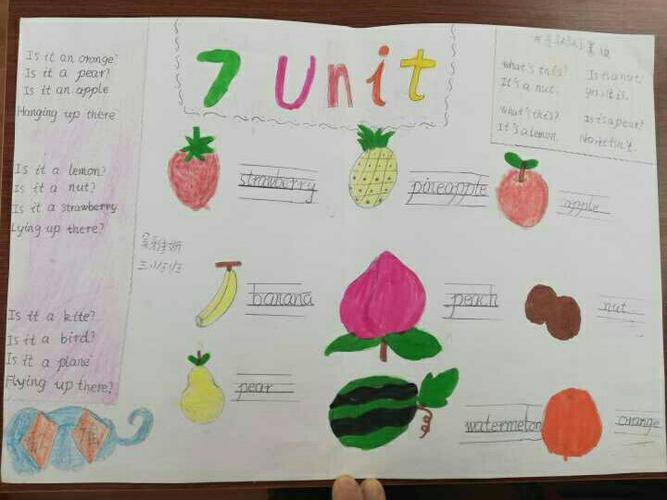 7 Unit
Is it an orange?
Is it a pear?
Is it an apple
Hanging up there
Is it a lemon?
Is it a nut?
Is it a strawberry
Lying up there?
Is it a kite?
Is it a bird?
Is it a plane
Flying up there?
What's this? Is it a nut?
It's a nut. yes, it is.
What's this? Is it a pear?
It's a lemon. No, it isn't.
strawberry
pineapple
apple
banana
peach
nut
pear
watermelon
orange